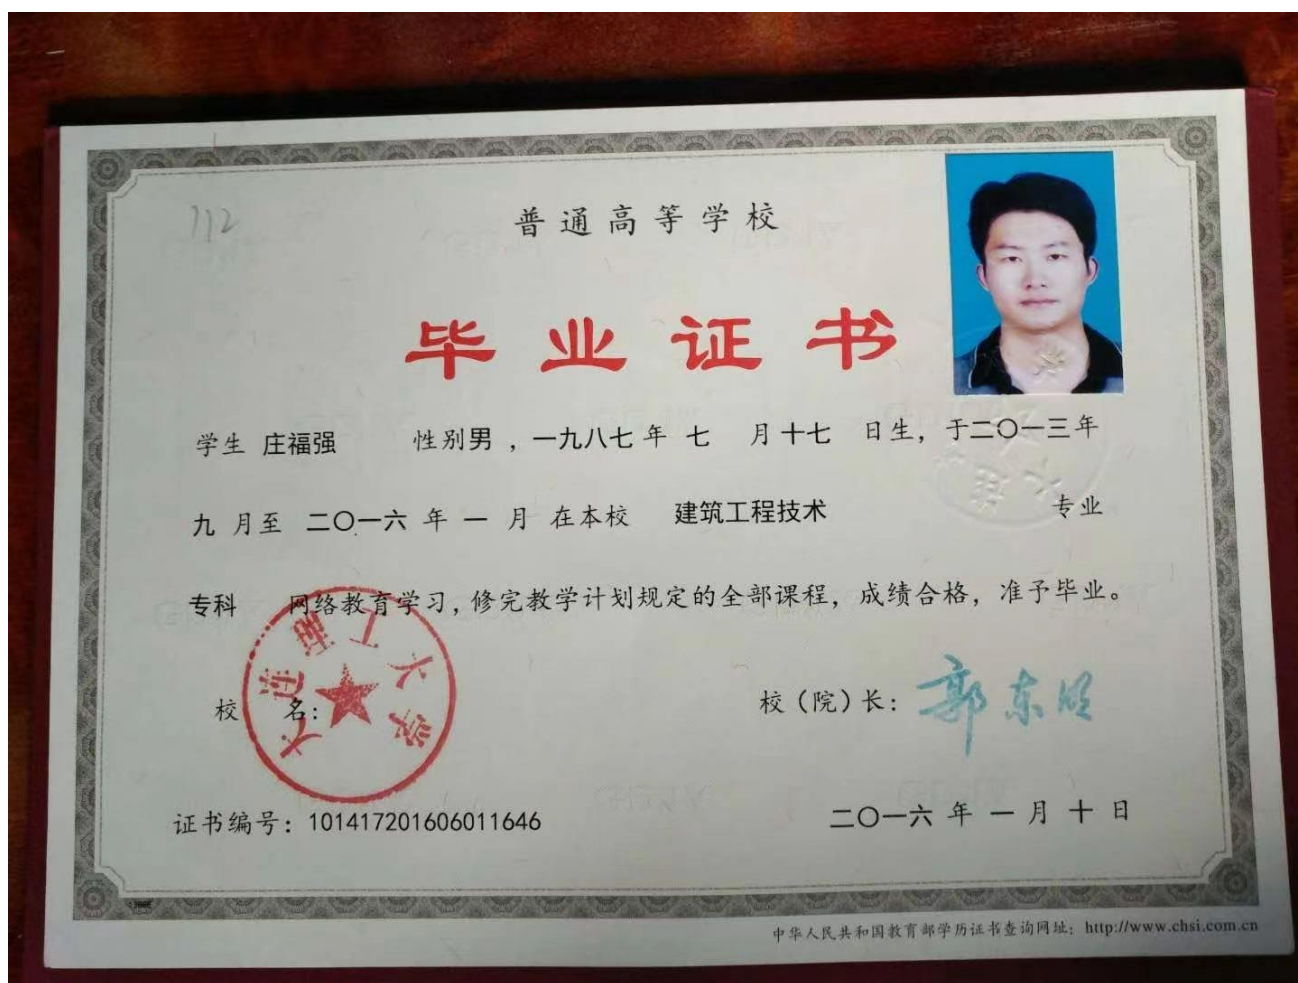 112
普通高等学校
毕业证书
学生 庄福强 性别男 ，一九八七年 七 月十七 日生，于二〇一三年
九 月至 二〇一六 年 一 月 在本校 建筑工程技术 专业
专科 网络教育学习，修完教学计划规定的全部课程，成绩合格，准予毕业。
校 名：
大连理工大学
校（院）长：郭东明
证书编号：101417201606011646
二〇一六 年 一 月 十 日
中华人民共和国教育部学历证书查询网址：http://www.chsi.com.cn